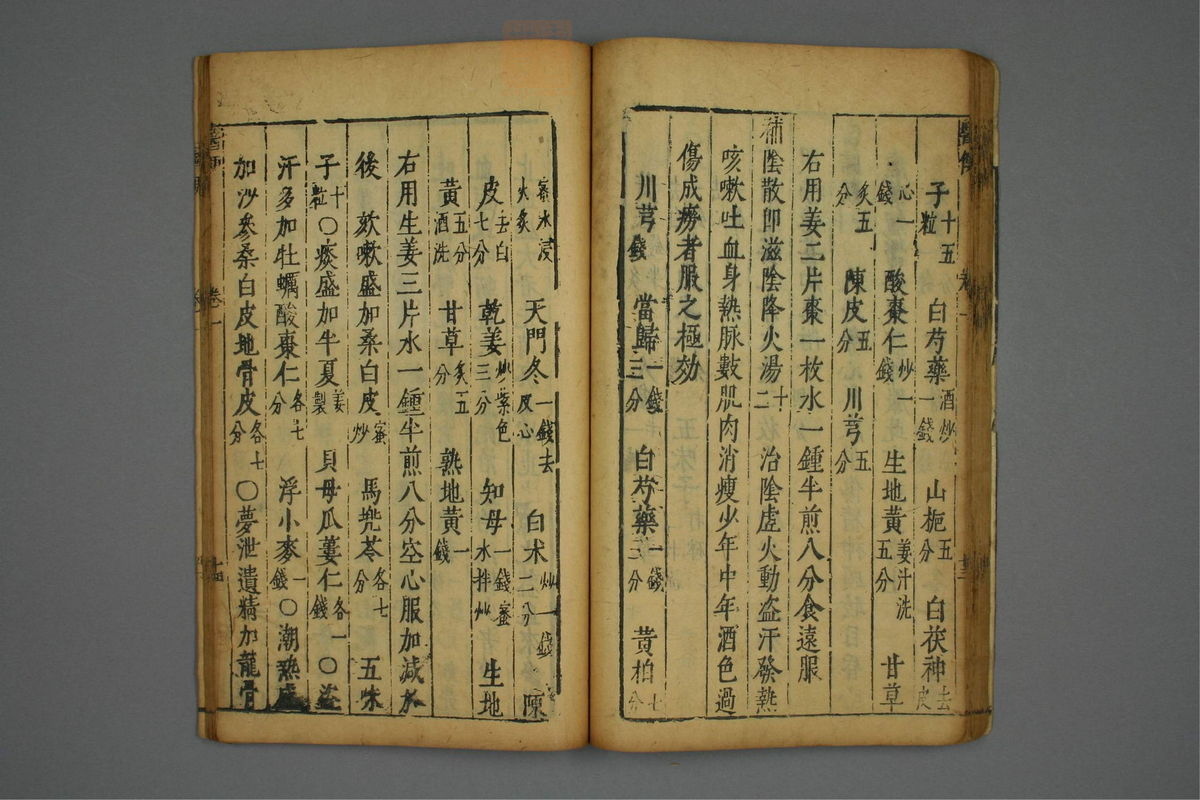 子十五粒 白芍藥酒炒一錢 山梔五分 白茯神去皮
心一錢 酸棗仁炒一錢 生地黃姜汁洗五分 甘草
炙五分 陳皮五分 川芎五分
右用姜二片棗一枚水一鍾半煎八分食遠服
補陰散卽滋陰降火湯十二 治陰虛火動盜汗發熱
咳嗽吐血身熱脉數肌肉消瘦少年中年酒色過
傷成癆者服之極効
川芎錢 當歸一錢三分 白芍藥一錢三分 黃柏七分
蜜水浸火炙 天門冬一錢去皮心 白术炒一錢二分 陳
皮去白七分 乾姜炒紫色三分 知母一錢蜜水拌炒 生地
黃五分酒洗 甘草炙五分 熟地黃一錢
右用生姜三片水一鍾半煎八分空心服加減水
後 欬嗽盛加桑白皮蜜炒 馬兠苓各七分 五味
子十粒○痰盛加半夏姜製 貝母瓜蔞仁各一錢○盜
汗多加牡蠣酸棗仁各七分 浮小麥一錢○潮熱盛
加沙參桑白皮地骨皮各七分○夢泄遺精加龍骨
卷一